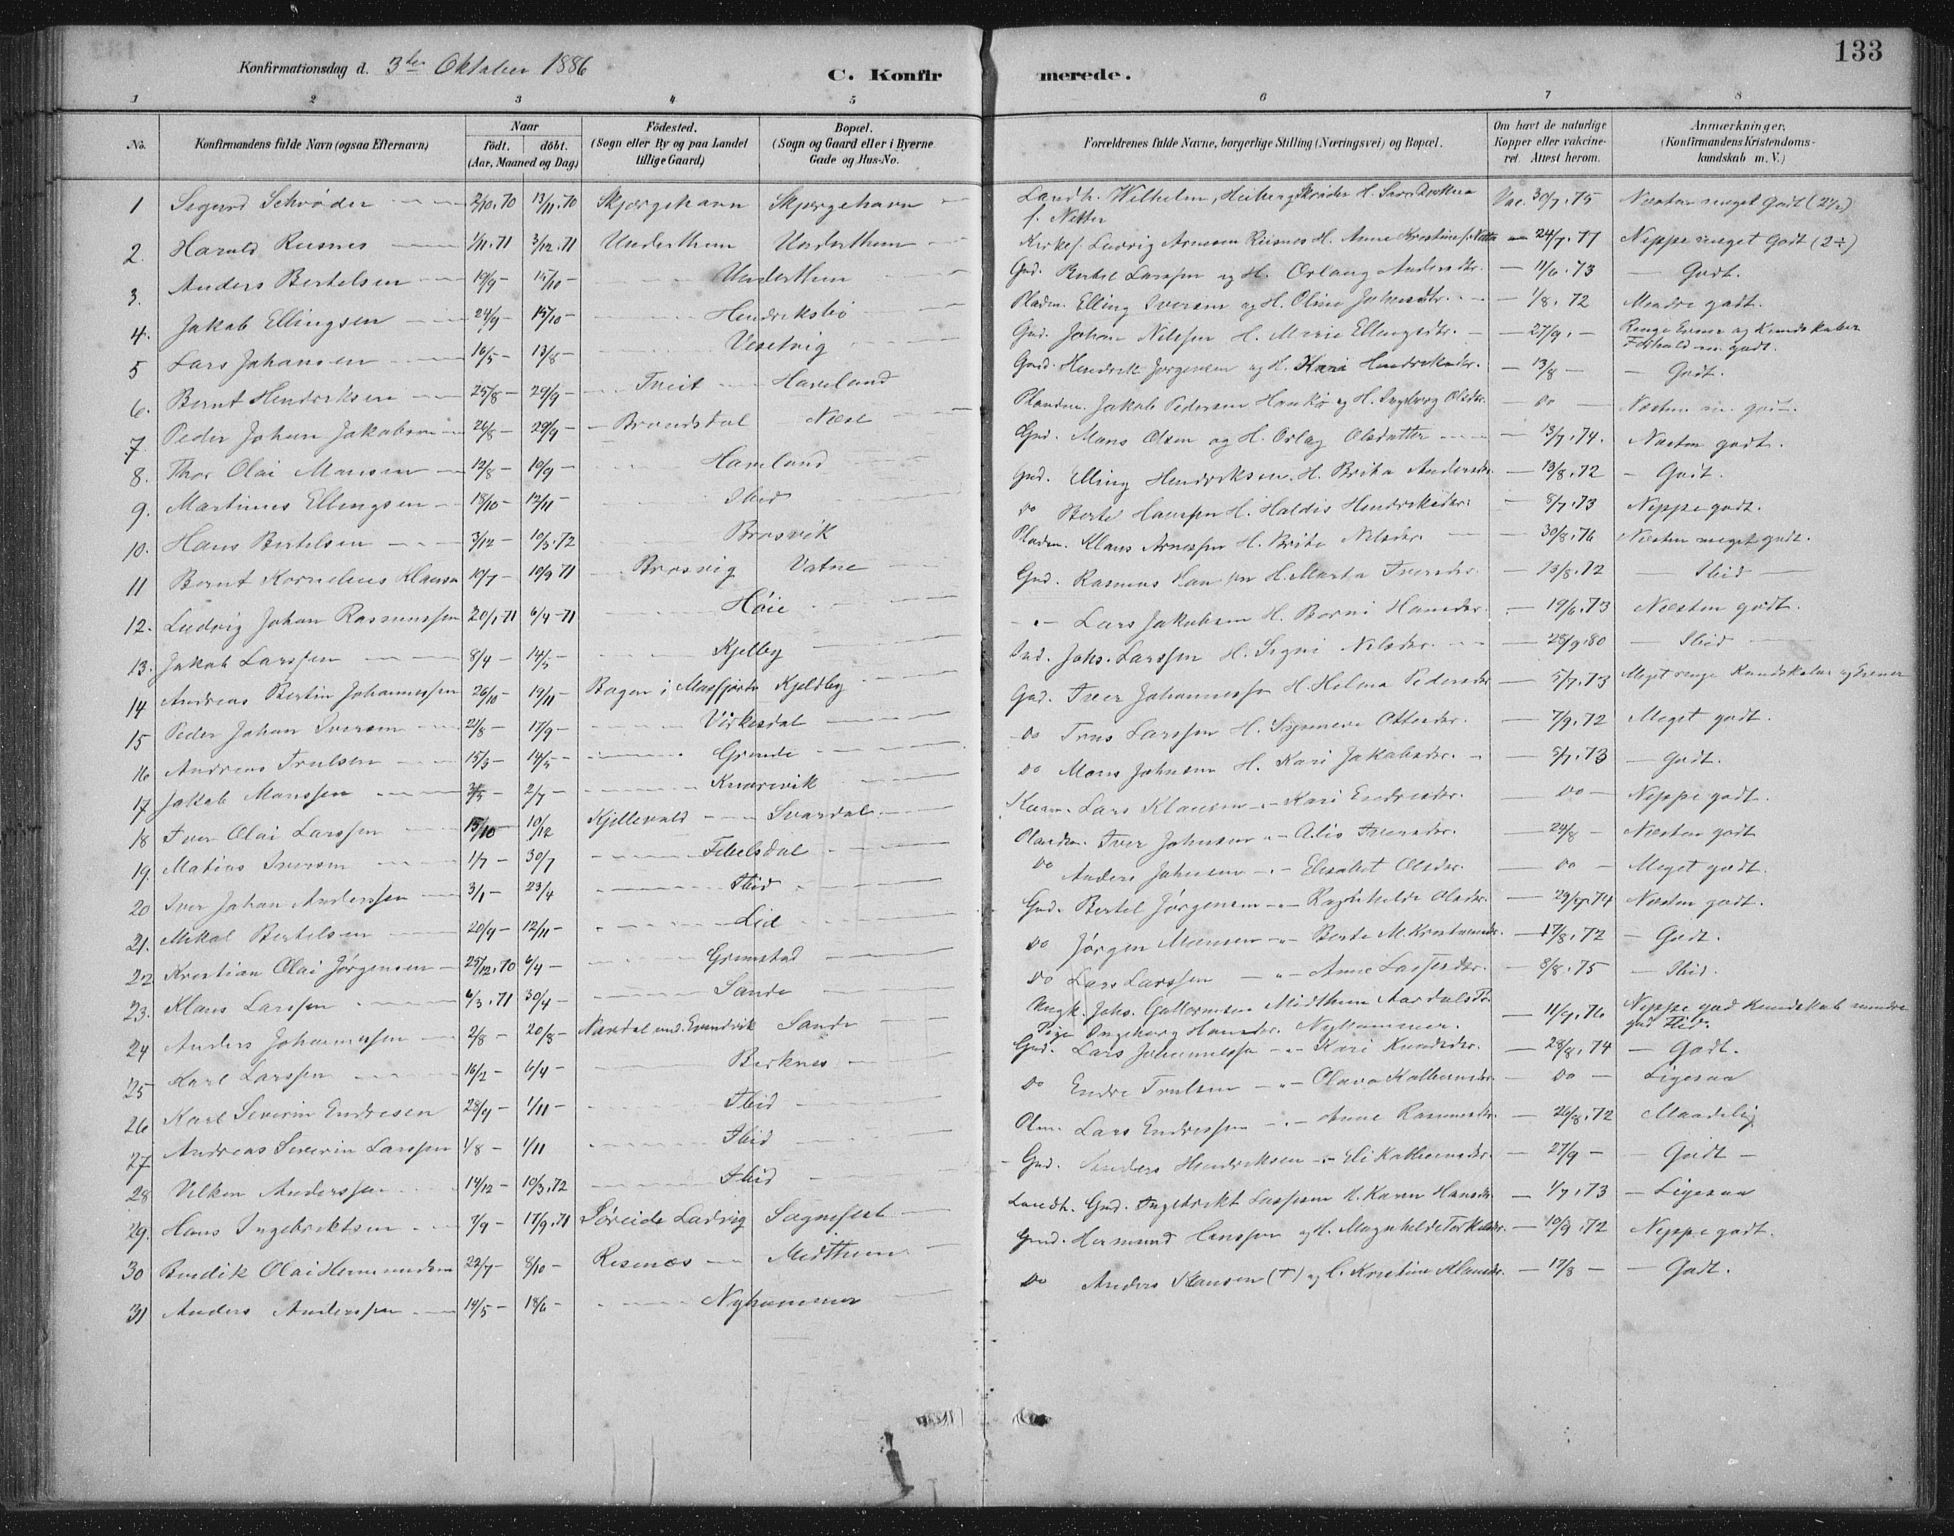 133
Konfirmationsdag d. 3die Oktober 1886
C. Konfirmerede.
1 2 3 4 5 6 7 8
No. Konfirmandens fulde Navn (ogsaa Efternavn) Naar født. døbt. (Aar, Maaned og Dag) Fødested. (Sogn eller By og paa Landet tillige Gaard) Bopæl. (Sogn og Gaard eller i Byerne Gade og Hus-No. Forældrenes fulde Navne, borgerlige Stilling (Næringsvei) og Bopæl. Om havt de naturlige Kopper eller vakcineret. Attest herom. Anmærkninger. (Konfirmandens Kristendomskundskab m. V.)
1 Sigurd Schrøder 2/10.70 13/11.70 Skjærgehavn Skjærgehavn Landh. Wilhelm Heiberg H. Vac. 30/7.75 Næsten meget godt (2½)
2. Harald Risnes 1/11.71 3/12.71 Underthun Underthun Kirkes. Ludvig Arnesen Risnes H. Anne Kristine f. 24/7.77 Neppe meget Godt (2÷)
3. Anders Bertelsen 19/9 — 15/10 — Underthun Gmd. Bertel Larssen og H. Orlaug Andersdtr. — 11/6.73 — Godt.
4. Jakob Ellingsen 24/9 — 15/10 — Hendriksbø Pladsm. Elling Iversen og H. Oline Johansdtr. — 1/8.72 Mendre godt.
5 Lars Johansen 16/5 — 13/8 — Vesetvig Gmd. Johan Nilssen H. Marie Ellingsdtr. — 27/9. — Ringe Evner og Kundskaber Forhold m. godt.
6. Bernt Hendriksen 25/8 — 29/9 — Tveit Haveland Gmd. Hendrik Jørgensen og H. Kari Hendriksdr. — 13/8 — Godt.
7. Peder Johan Jakobsen 26/8 — 29/9 — Brandsdal Næse Pladsm. Jakob Pedersen og H. Ingeborg Olsdtr. — do — Næsten m. godt.
8. Thor Olai Mansen 12/8 — 10/9 — Haveland Gmd. Mons Olsen og H. Orlog Olsdatter — 13/7.74. Næsten godt.
9. Martinus Ellingsen 18/10 — 12/11 — Ibid Gmd. Elling Hendriksen. H. Brita Andersdtr — 13/8.72 — Godt.
10. Hans Bertelsen 3/12 — 10/3.72 Brosvik do Bertel Hanssen H. Haldis Hendriksdtr. — 8/7.73 Neppe godt.
11 Bernt Kornelius Klausen 10/7 — 10/9.71 Brosvig Vatne Pladsm. Klaus Arnessen H. Brita Nilsdtr. — 30/8.76 Næsten meget godt.
12. Ludvig Johan Rasmussen 20/1.71 6/4 — 71 Høie Gmd. Rasmus H. Marta Iversdtr. — 13/8.72 — Ibid —
13. Jakob Larssen 8/4 — 14/5 — Kjelby Lars Jakobsen H. Borni Hansdtr. — 19/6.73 Næsten godt.
14 Andreas Bertin Johannessen 26/10 — 19/11 — Bogen i Masfjorden Kjeldby Ind. Johs. Larssen H. Signi Nilsdtr. — 28/9.80 — Ibid —
15 Peder Johan Iversen 2/8 — 17/9 — Virkesdal Gmd. Iver Johannessen H. Helena Pedersdtr — 5/7.73 Meget ringe Kundskaber og Evner
16 Andreas Trulsen 15/3 — 14/5 — Grinde do Truls Larssen H. Synneve Ottersdtr. — 7/9.72 Meget godt.
17. Jakob Monssen 2/7 — Knarevik do Mons Johnsen H. Kari Jakobsdtr. — 5/7.73 — Godt.
18 Iver Olai Larssen 15/10 10/12 Kjellevold Svardal Lars Klausen „ Kari Endresdtr. — do — Neppe godt.
19. Matias Iversen 1/7 — 30/7 — Tibelsdal Iver Johnsen „ Alis Iversdtr. — 24/8 — Næsten godt
20 Iver Johan Anderssen 3/1 — 23/4 Ibid do Anders Johnsen „ Elisabet Olsdtr — do — Meget godt.
21. Mikal Bertelsen 20/9 — 12/11 — Lid Gmd. Bertel Jørgensen „ Ragnhilde Olsdtr. Næsten godt.
22 Kristian Olai Jørgensen 25/12.70 6/4 — Grimstad do Jørgen Monsen „ Berte M. — 17/8.72 — Godt.
23. Klaus Larssen 6/3.71 30/4 — Sande do Lars Larssen „ Anne Lassesdtr. — 8/8.75 — Ibid.
24 Anders Johannessen 2/8 — 20/8 — Nordal Sande Ungk. Johs. Midthun Aardal Pige Ingeborg Hansdtr. Nyhammer. — Neppe god Kundskab mindre god Flid.
25 Karl Larssen 16/2 — 6/4 — Birknes Gmd. Lars Johannessen „ Kari Knudsdtr. — 28/8.74 — Godt.
26 Karl Severin Endresen 28/9 — 1/11 — Ibid do Endre Trulsen „ Olava — do — Ligesaa
27 Andreas Severin Larssen 4/8 — 1/11 Ibid Lars Endressen „ Anne Rasmusdtr. — 26/8.72 Maadelig
28 Vilken Anderssen 14/12 — 10/3.72 Ibid Gmd. Anders Hendriksen „ Eli — 27/9 — Godt —
29. Hans Ingebriktsen 7/9 — 17/9.71 Søreide Ladvig Sognefest Landh. Gmd. Ingebrikt Lassesen H. Karen Hansdtr. — 1/7.73 — Ligesaa
30 Bendik Olai Hermundsen 22/7 — 8/10 — Risenæs Midthun Gmd. Hermund Hanssen og H. Magnhilde Torkelsdtr. — 10/9.72 Neppe godt.
31 Anders Anderssen 14/5 — 18/6 — Nyhammer do Anders Klausen (†) og H. Kristine Klausdtr. — 17/8 — Godt.